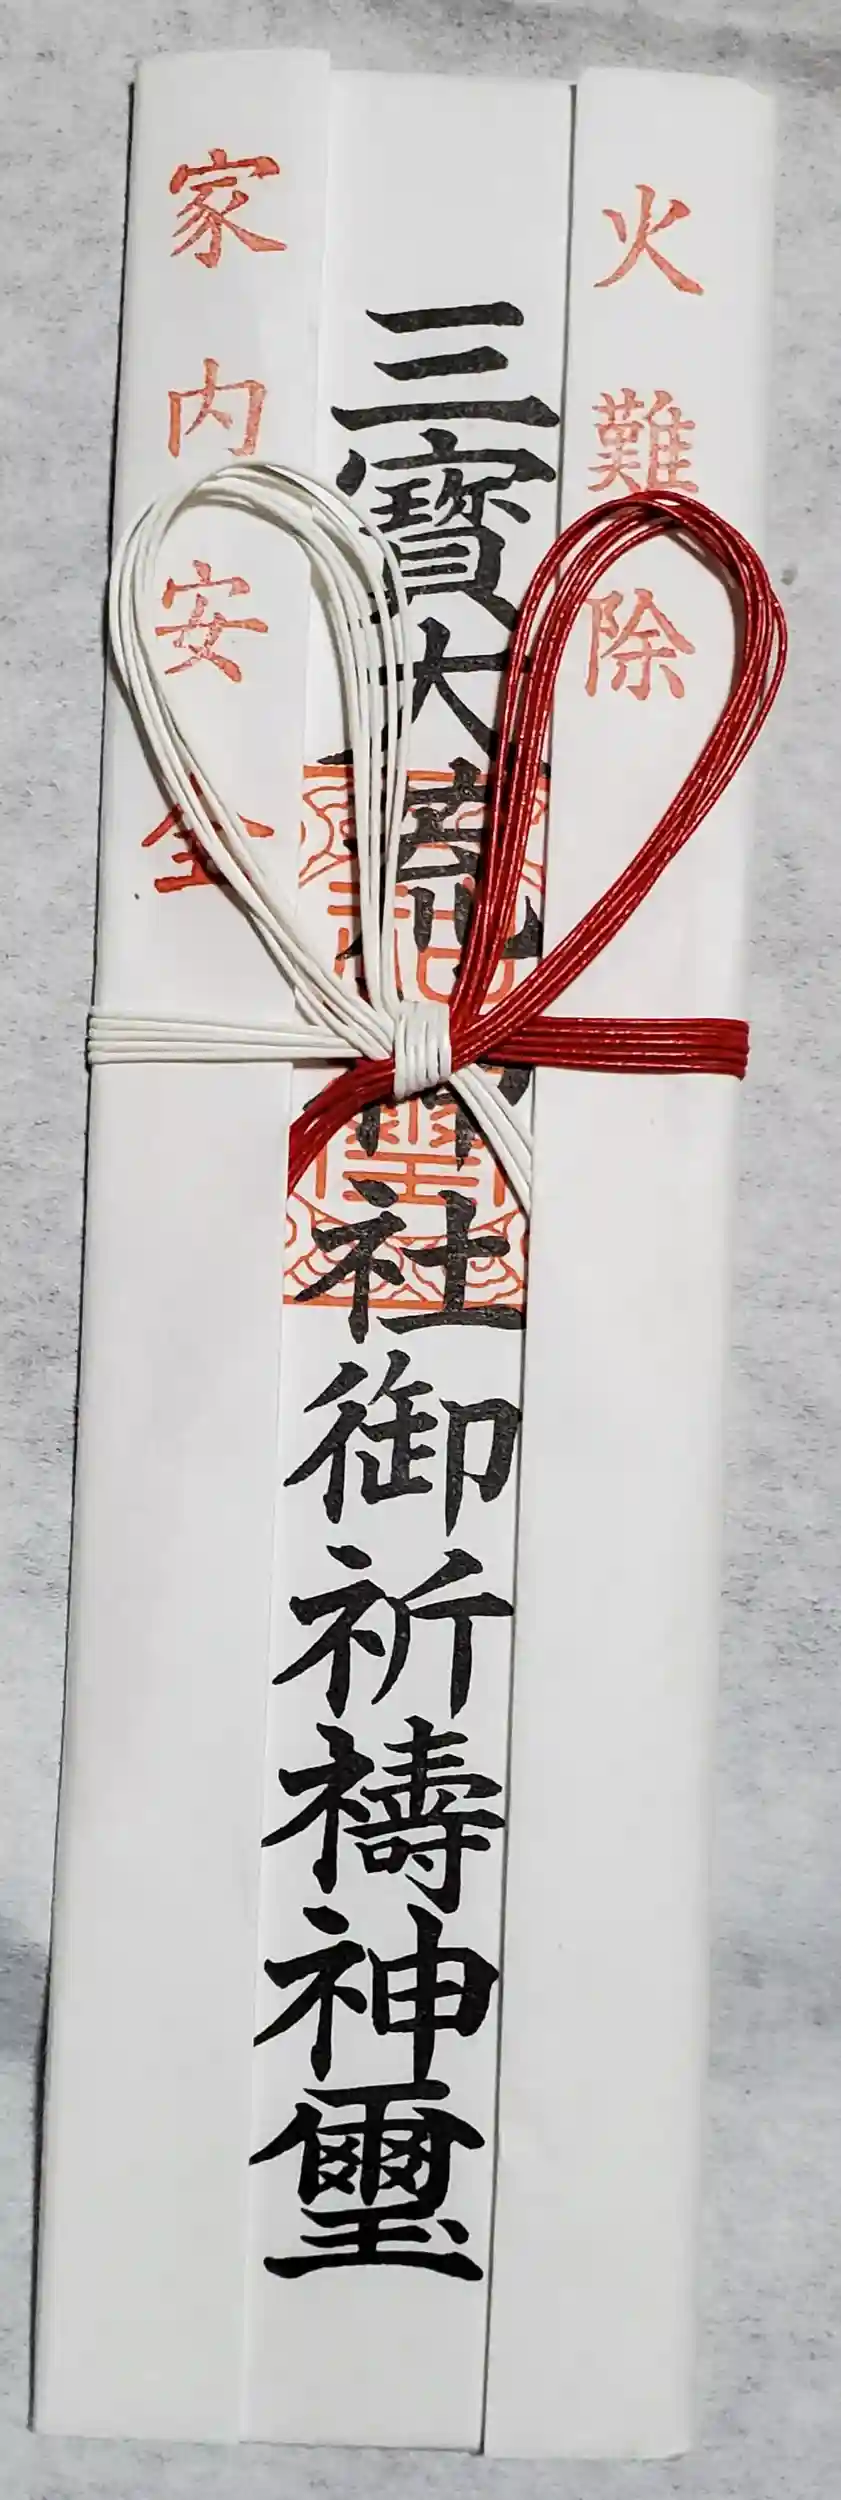 火難除
三寳大荒神社御祈禱神璽
家内安全